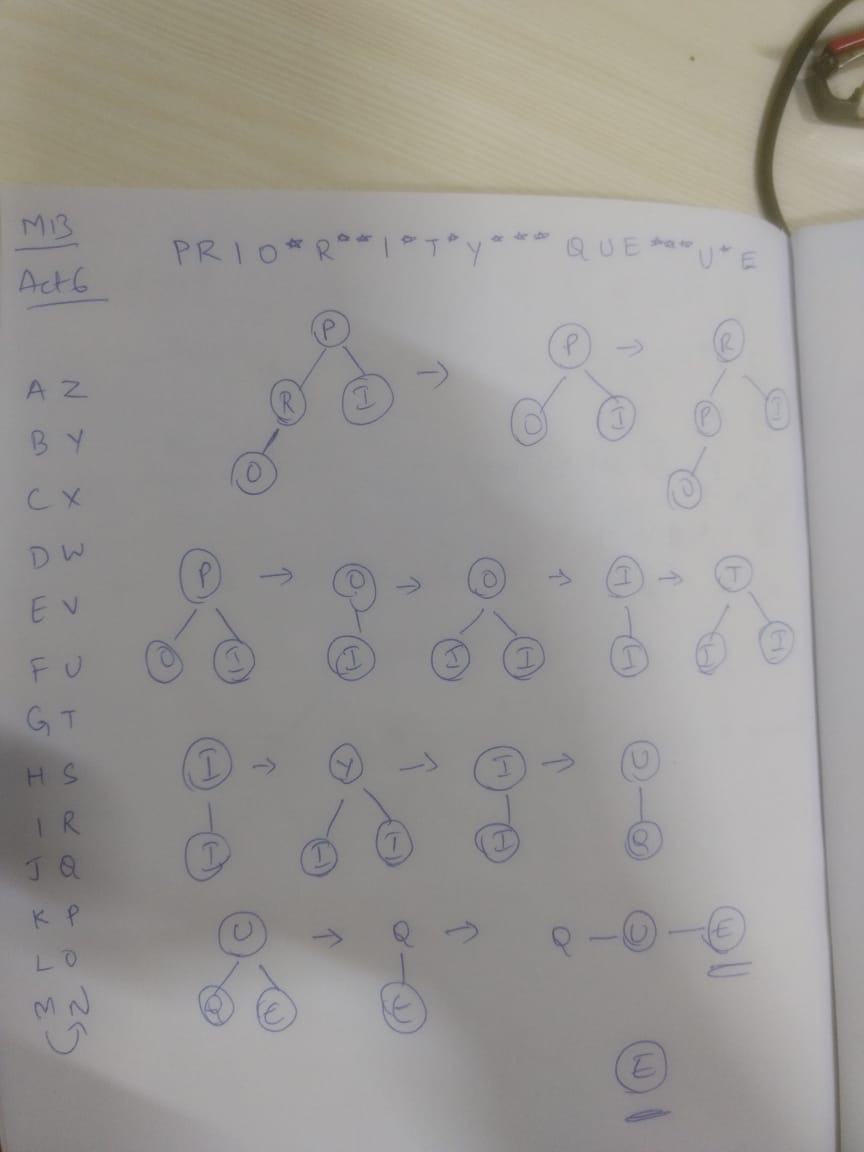 M13
Act 6
PRIO*R**I*T*Y***QUE***U*E
A Z
B Y
C X
D W
E V
F U
G T
H S
I R
J Q
K P
L O
M N
P → P → R
R I O I P I
O O
P → O → O → I → T
O I I I I I I I
I → Y → I → U
I I I I Q
U → Q → Q – U – E
Q E E
E